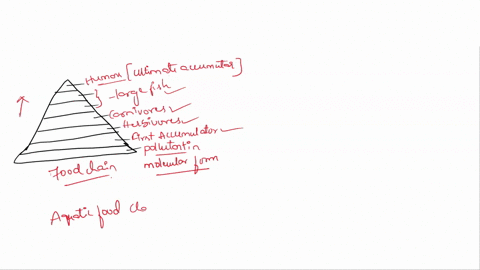 Human [Ultimate accumulator]
- large fish
Carnivores
Herbivores
First Accumulator
pollutant in
molecular form
Food chain
Aquatic food cha